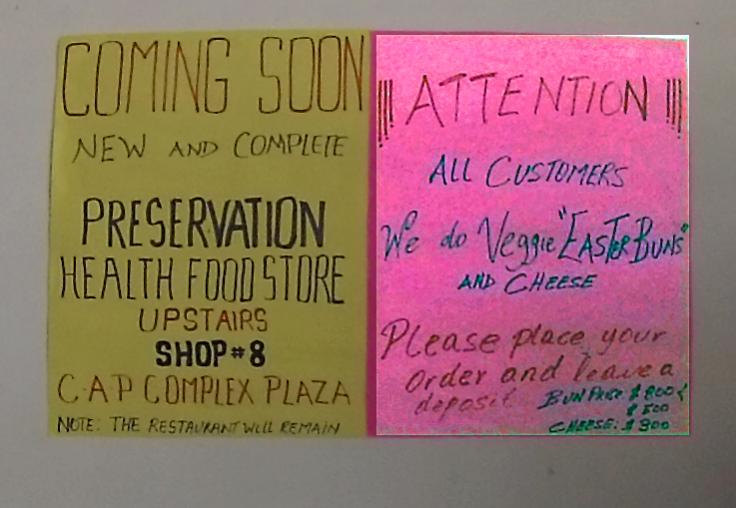 COMING SOON
NEW AND COMPLETE
PRESERVATION
HEALTH FOOD STORE
UPSTAIRS
SHOP #8
C.A.P COMPLEX PLAZA
NOTE: THE RESTAURANT WILL REMAIN
!!! ATTENTION !!!
ALL CUSTOMERS
We do Veggie "EASTER BUNS"
AND CHEESE
Please place your
Order and leave a
deposit
BUN PRICE: $800
$500
CHEESE: $300